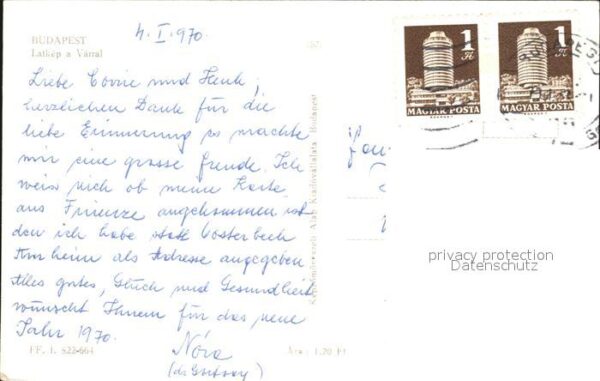 BUDAPEST
Látkép a Várral
4. I. 970.
Liebe Corrie und Henk,
herzlichen Dank für die
liebe Erinnerung es machte
mir eine grosse freude. Ich
weis nich ob meine Karte
aus Firenze angekommen ist
den ich habe statt Oosterbeek
Arnheim als Adresse angegeben
Alles gutes, Glück und Gesundheit
wünscht Ihnem für das neue
Jahr 1970.
Nóra
FF. I. 822-664
Ára: 1.20 Ft
Képzőművészeti Alap Kiadóvállalata Budapest
1 Ft
MAGYAR POSTA
1 Ft
MAGYAR POSTA
privacy protection
Datenschutz